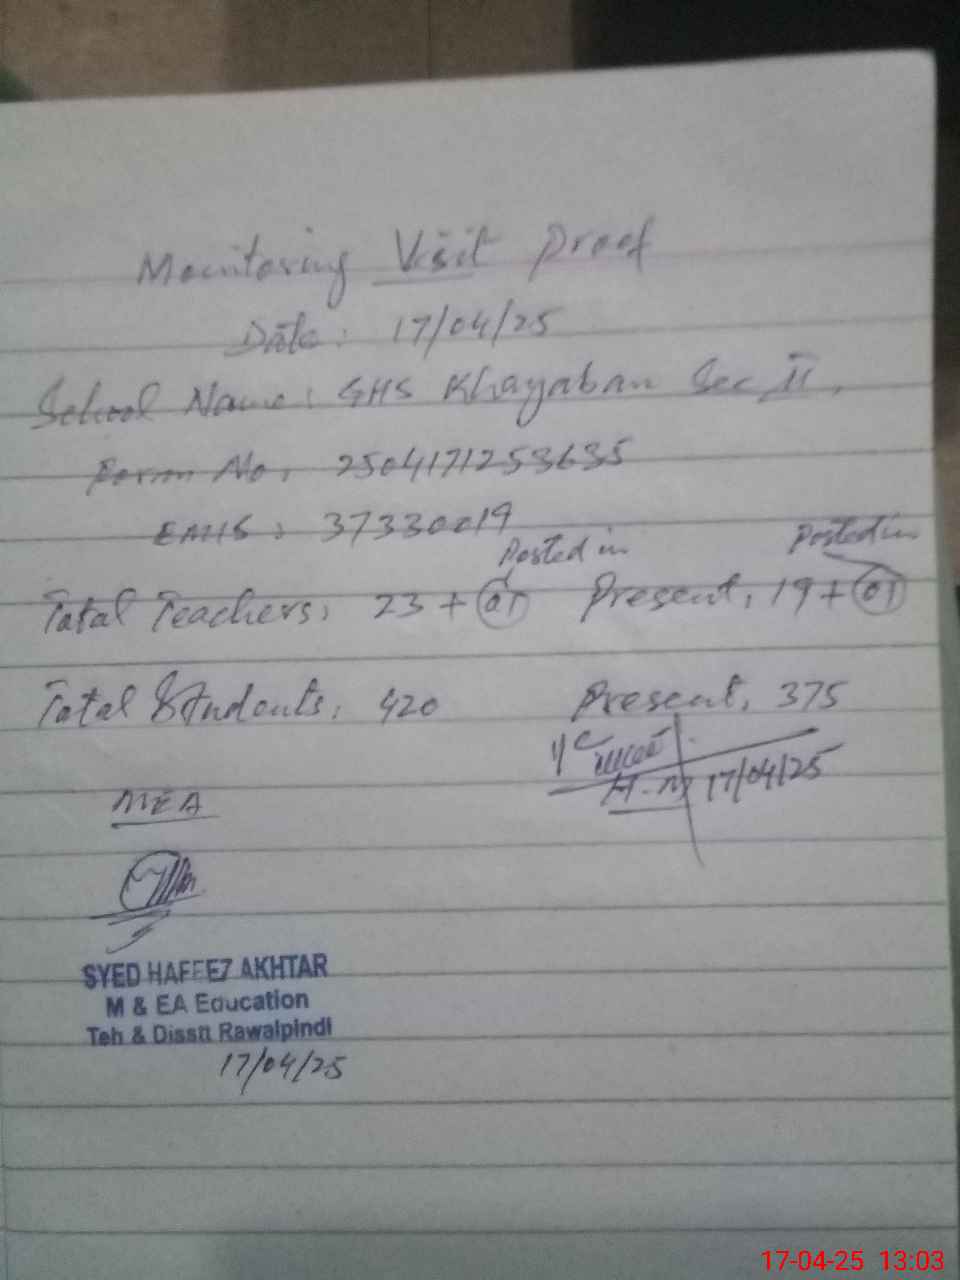 Monitoring Visit Proof
Date: 17/04/25
School Name: GHS Khayaban Sec II,
Form No, 2504171253635
EMIS: 37330019
Posted in Posted in
Total Teachers, 23 + 01 Present, 19 + 01
Total Students, 420 Present, 375
H.M 17/04/25
MEA
SYED HAFEEZ AKHTAR
M & EA Education
Teh & Disstt Rawalpindi
17/04/25
17-04-25 13:03